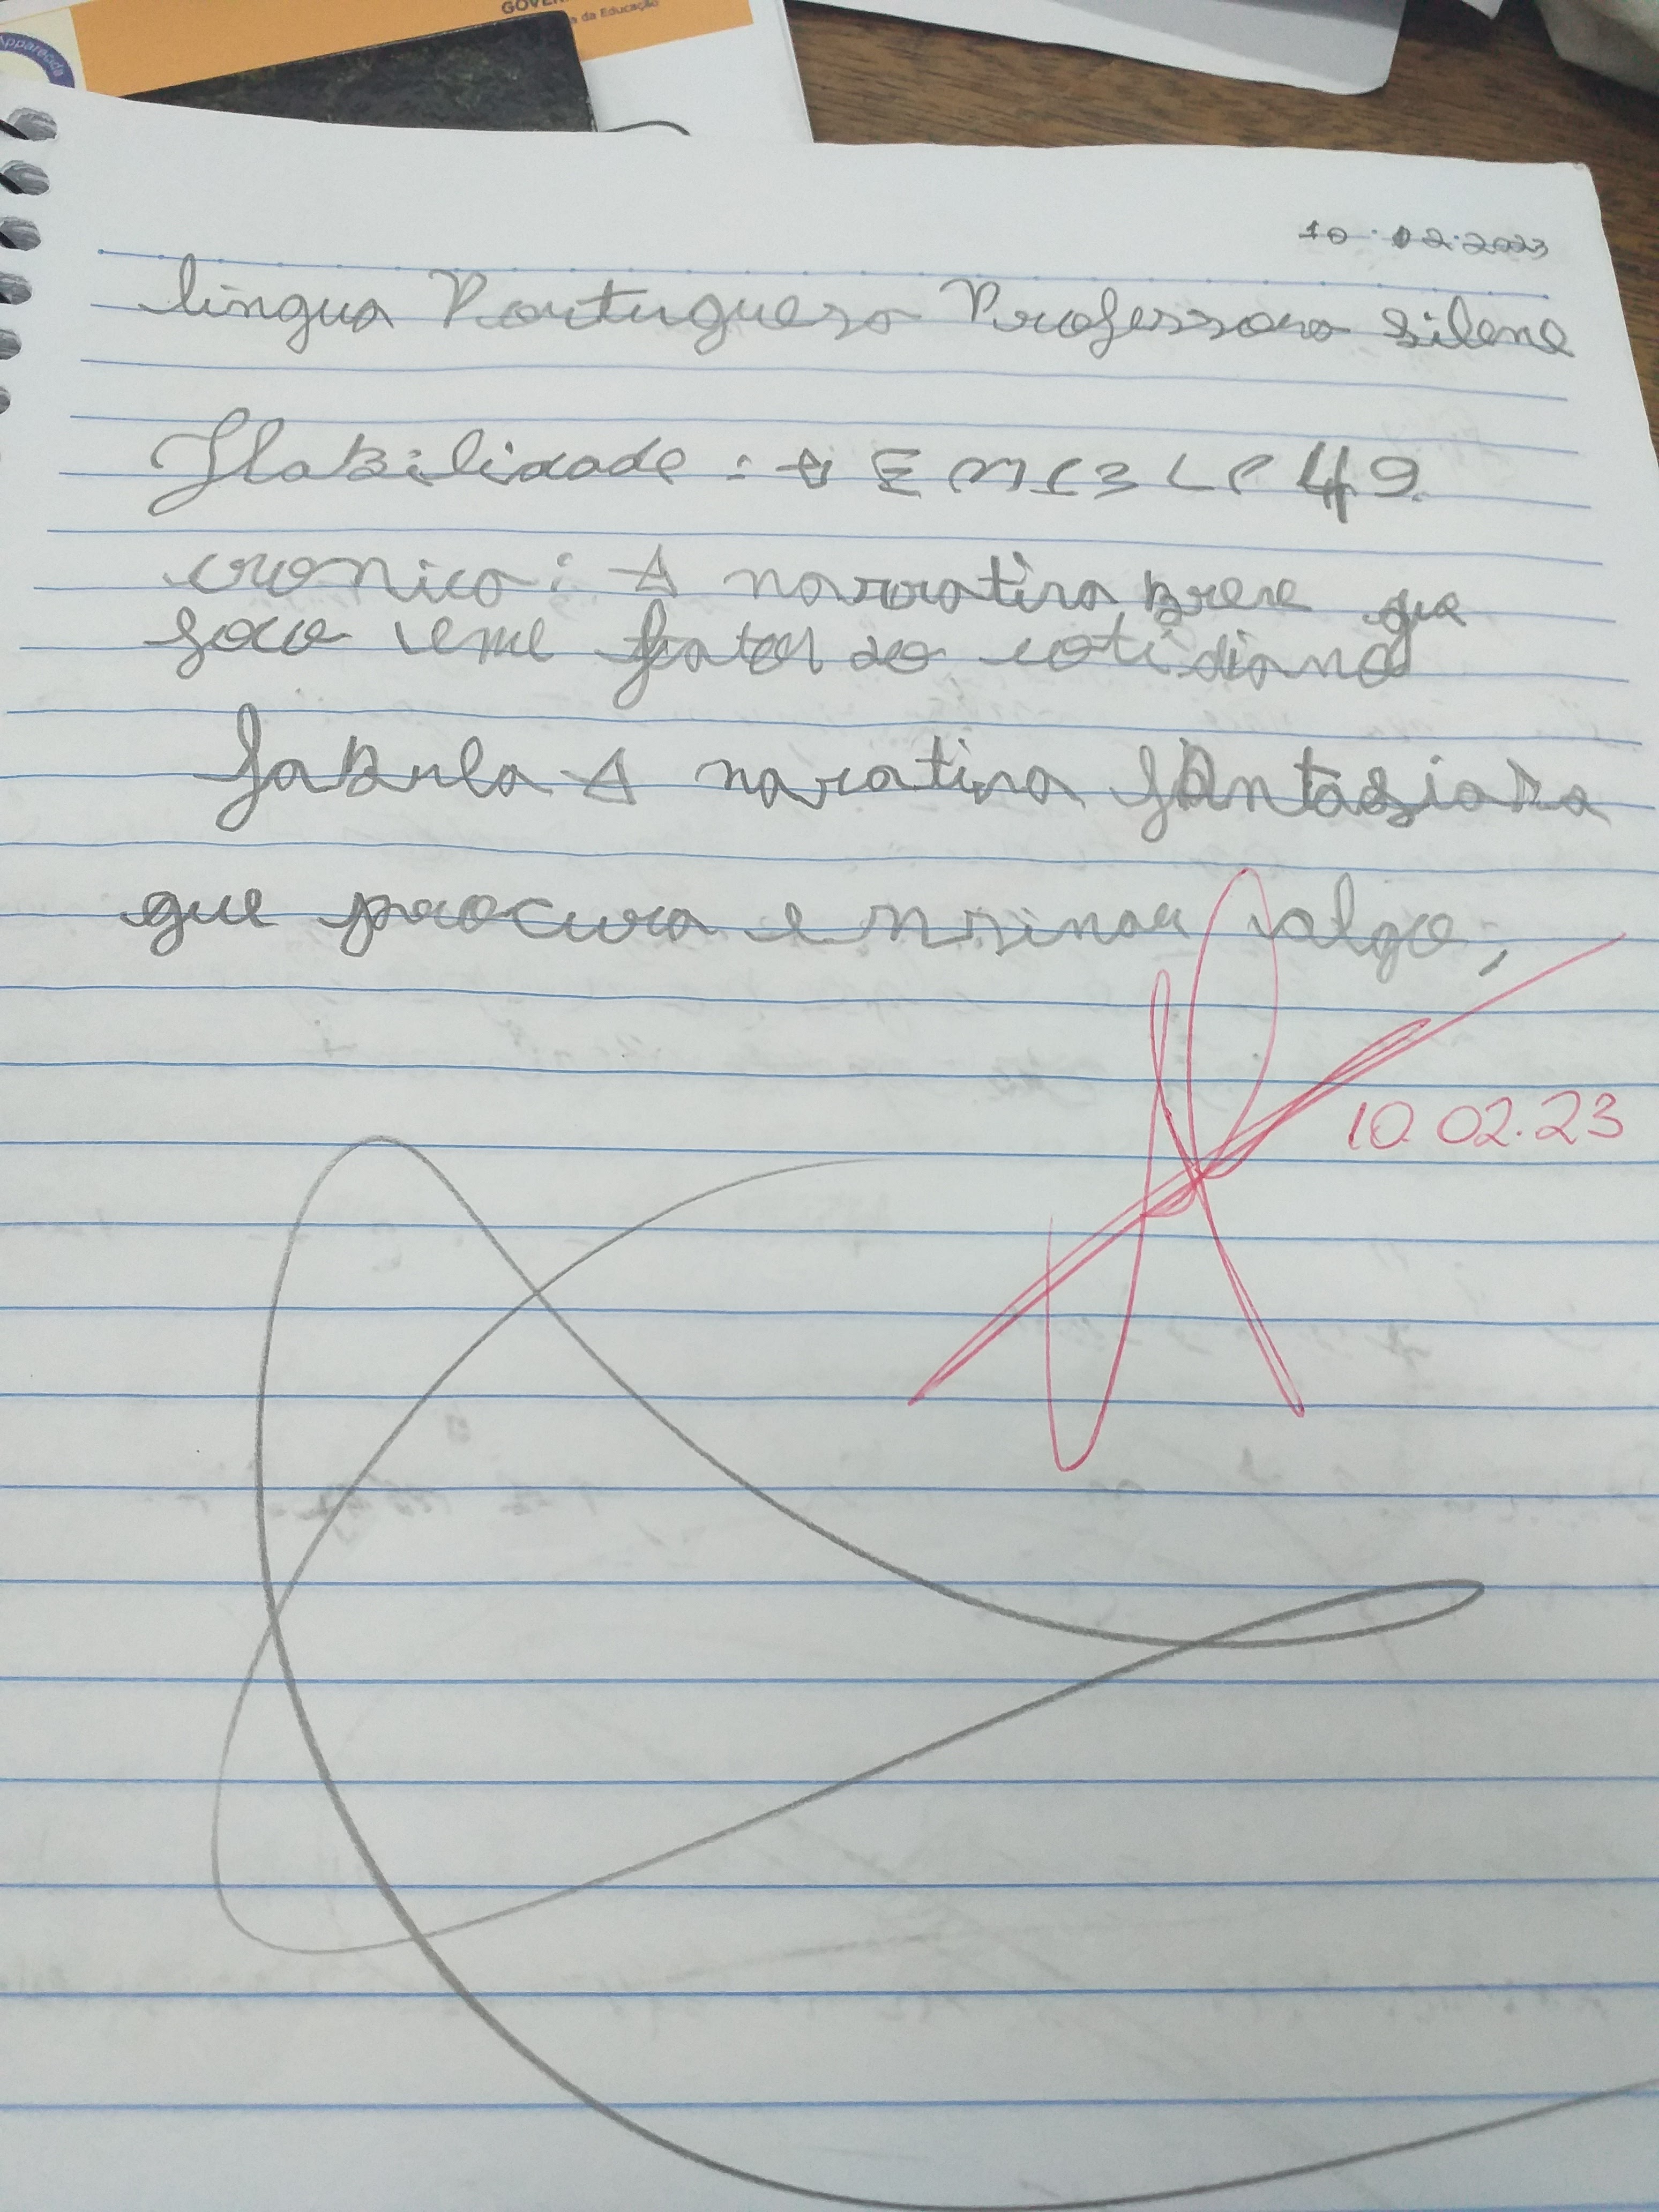 Apparecida
GOVER
da Educação
10.02.2023
lingua Portuguesa Professora Silene
Habilidade: EM13LP49.
cronica: A narrativa breve que
foca em fatos do cotidiano
fabula A narativa fantasiosa
que procura ensinar algo,
10.02.23